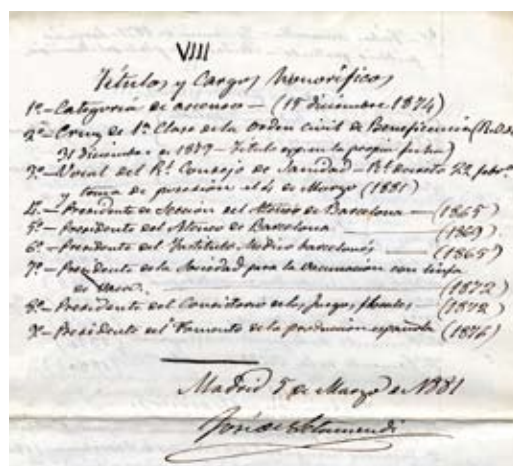 VIII
Títulos y Cargos honoríficos
1º - Categoría de ascenso - (18 diciembre 1874)
2º - Cruz de 1ª Clase de la Orden civil de Beneficencia (R.O. de
31 diciembre de 1879 - Título exp. en la propia fecha)
3º - Vocal del Rl. Consejo de Sanidad - Rl. decreto 22 febrº
y toma de posesión el 4 de Marzo (1881)
4º - Presidente de Sección del Ateneo de Barcelona - (1865)
5º - Presidente del Ateneo de Barcelona (1869)
6º - Presidente del Instituto Médico barcelonés (1865)
7º - Presidente de la Sociedad para la vacunación con linfa
de vaca. (1872)
8º - Presidente del Consistorio de los Juegos florales - (1878)
9º - Presidente del Fomento de la producción española (1876)
Madrid 5 de Marzo de 1881
José de Letamendi